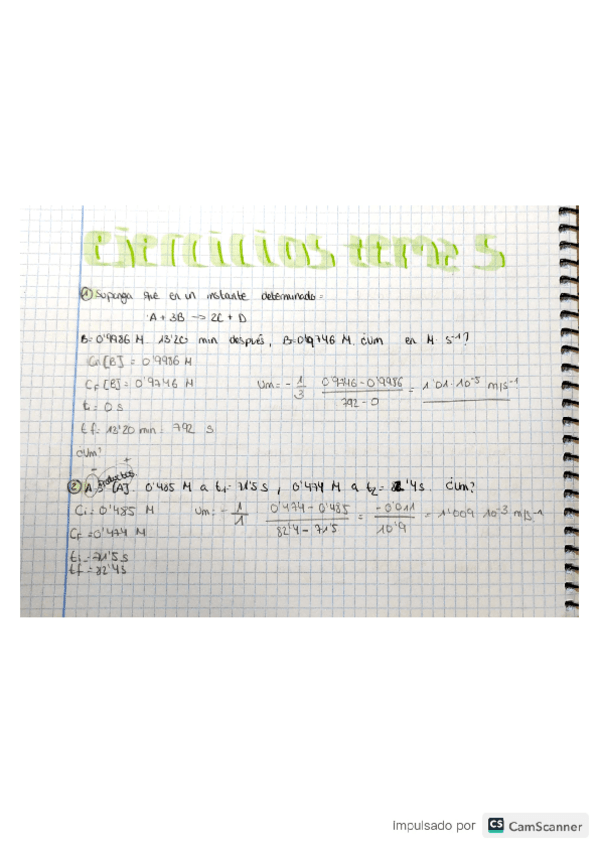 Ejercicios tema 5
① Suponga que en un instante determinado:
A + 3B → 2C + D
B = 0'9986 M. 13'20 min después, B = 0'9746 M. ¿um en M·s⁻¹?
Ci [B] = 0'9986 M
CF [B] = 0'9746 M Um = - 1/3 0'9746 - 0'9986 / 792 - 0 = 1'01·10⁻⁵ m/s⁻¹
t = 0 s
tf = 13'20 min = 792 s
¿um?
- +
② A → productos. [A]. 0'485 M a t₁ = 71'5 s, 0'474 M a t₂ = 82'4 s. ¿um?
Ci = 0'485 M Um = - 1/1 0'474 - 0'485 / 82'4 - 71'5 = -0'011 / 10'9 = 1'009·10⁻³ m/s⁻¹
CF = 0'474 M
ti = 71'5 s
tf = 82'4 s
Impulsado por CS CamScanner